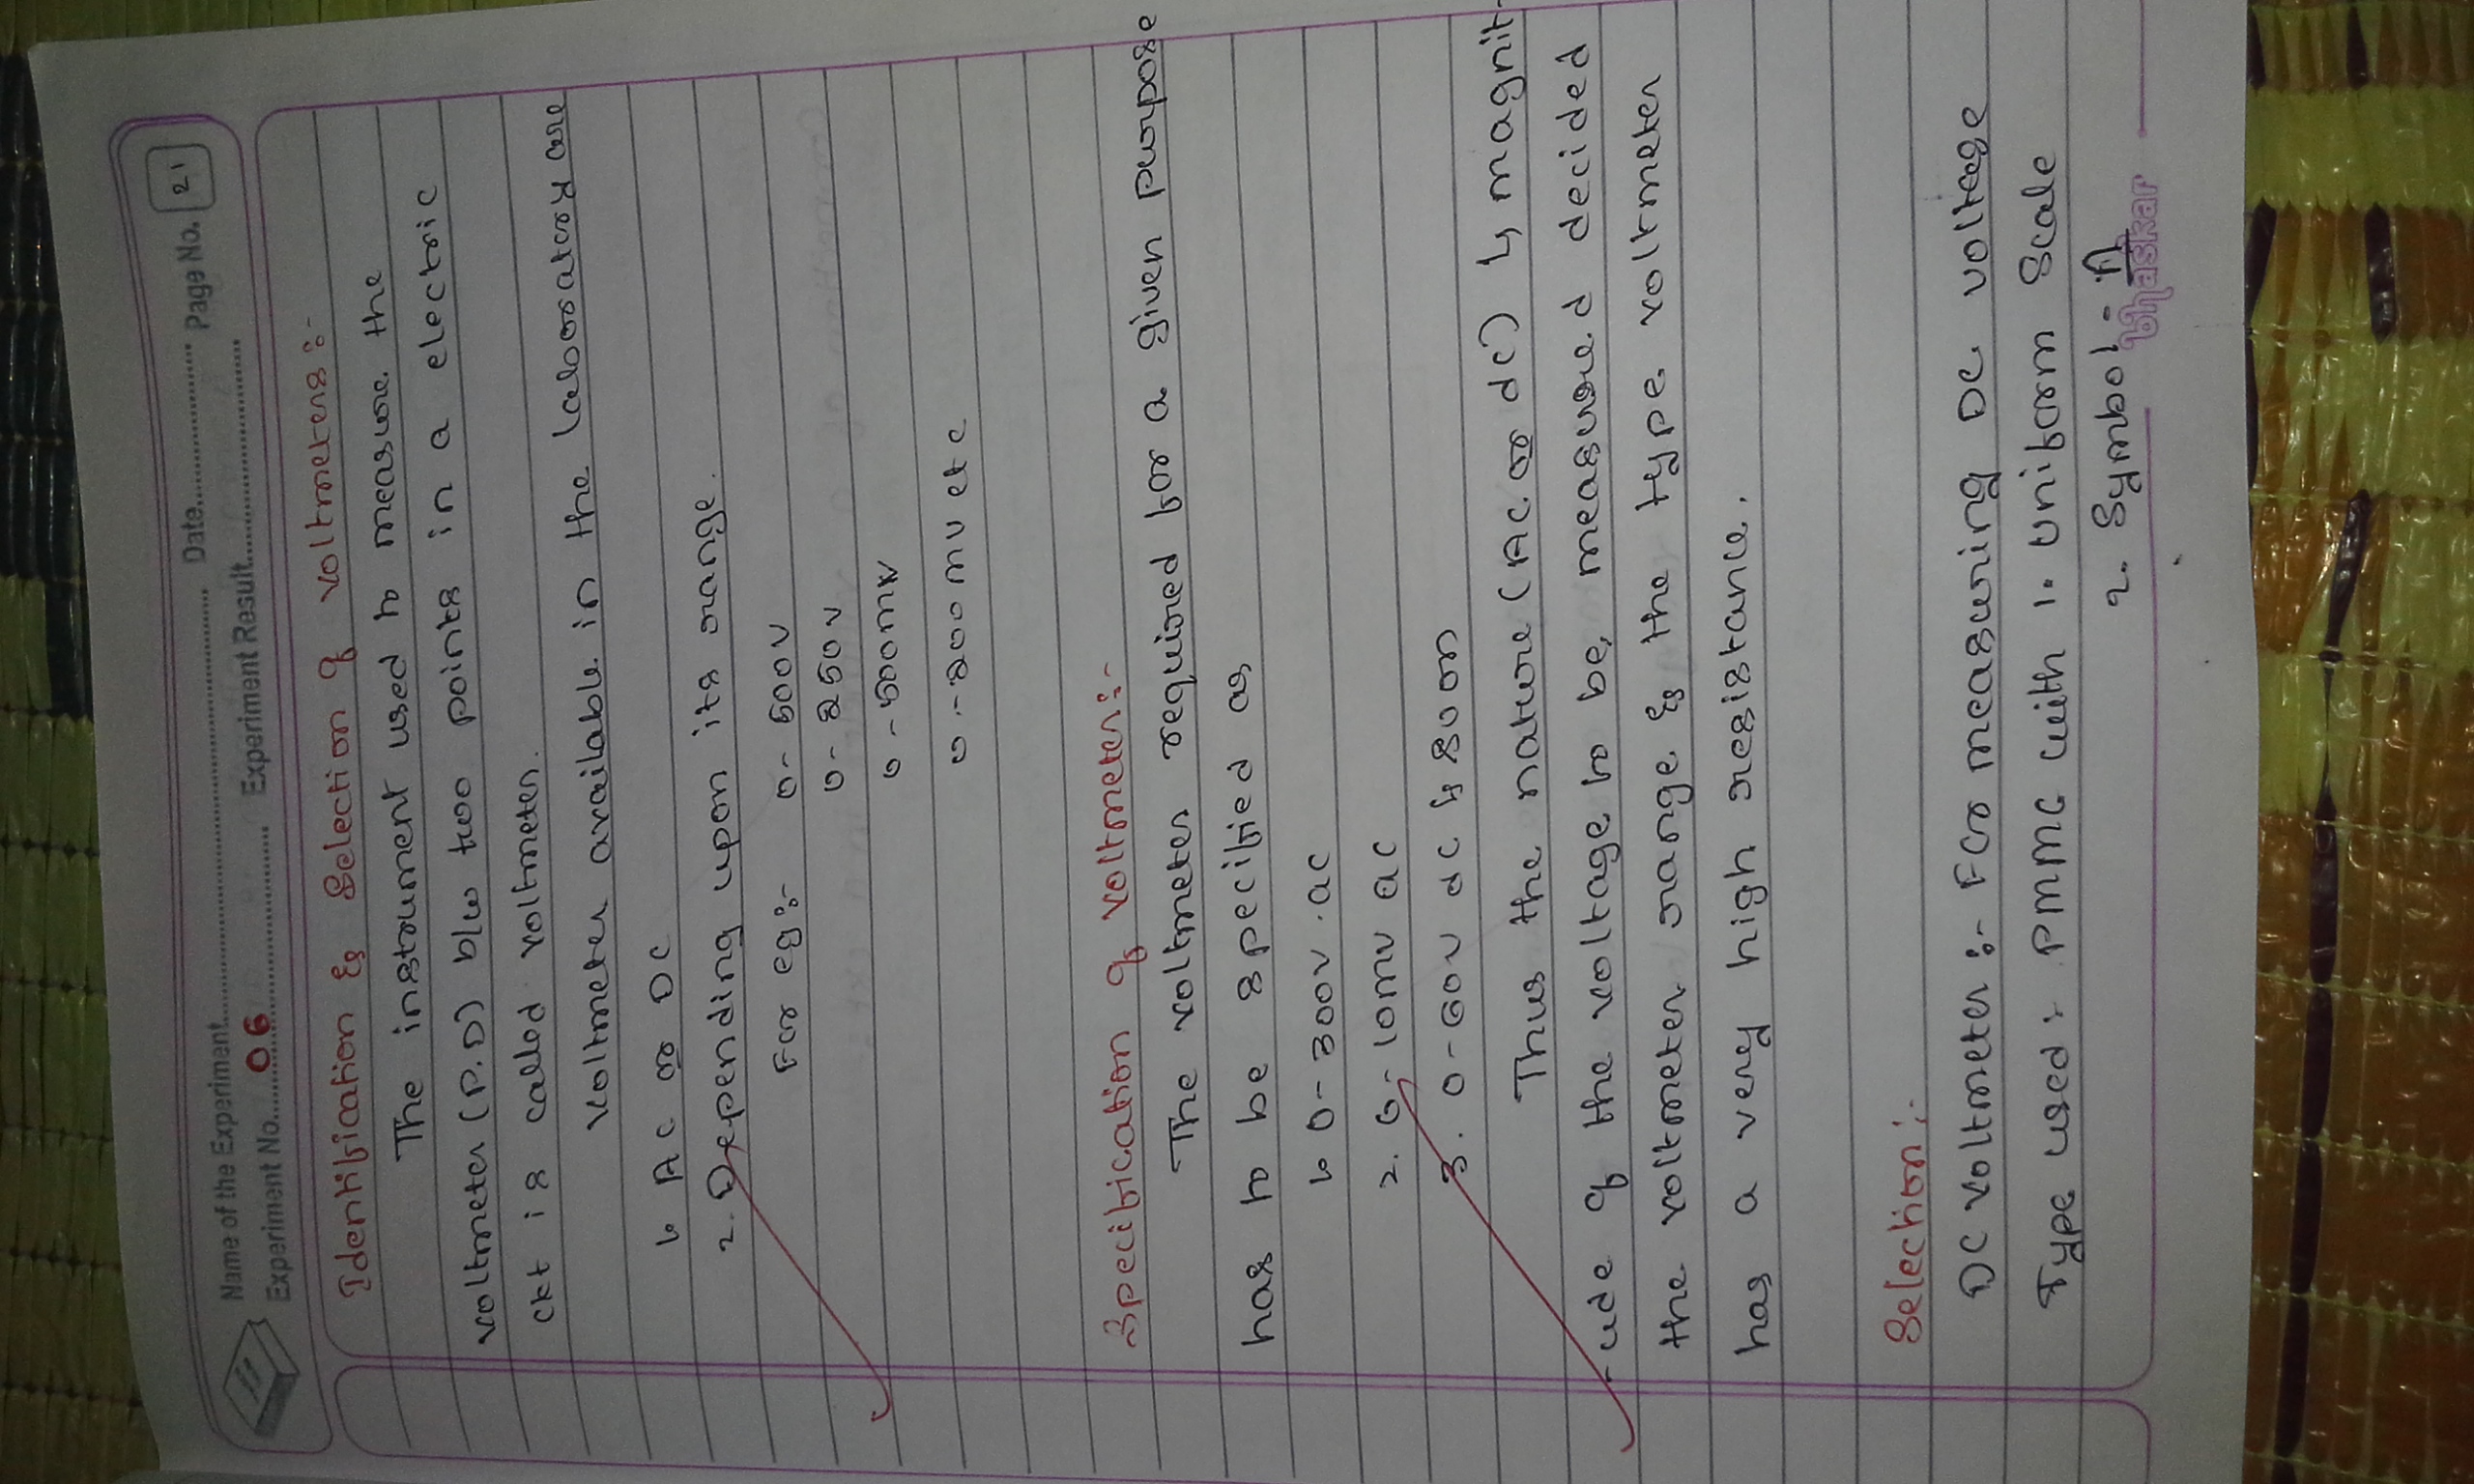 Name of the Experiment.................... Date.................... Page No. 21
Experiment No. 06 Experiment Result....................
Identification & Selection of voltmeters :-
The instrument used to measure the
voltmeter (P.D) b/w two points in a electric
ckt is called voltmeter.
voltmeter available in the laboratory are
1. Ac or DC
2. Depending upon its range.
For eg:- 0 - 500v
0 - 250v
0 - 500mv
0 - 200mv etc
Specification of voltmeter:-
The voltmeter required for a given purpose
has to be specified as
1. 0 - 300v ac
2. 0 - 10mv ac
3. 0 - 60v dc & soon
Thus the nature (Ac or dc) & magnit-
-ude of the voltage to be, measured decided
the voltmeter range & the type voltmeter
has a very high resistance.
Selection:-
DC voltmeter :- For measuring DC voltage
Type used : PMMC with 1. Uniform Scale
2. Symbol :-
bhaskar